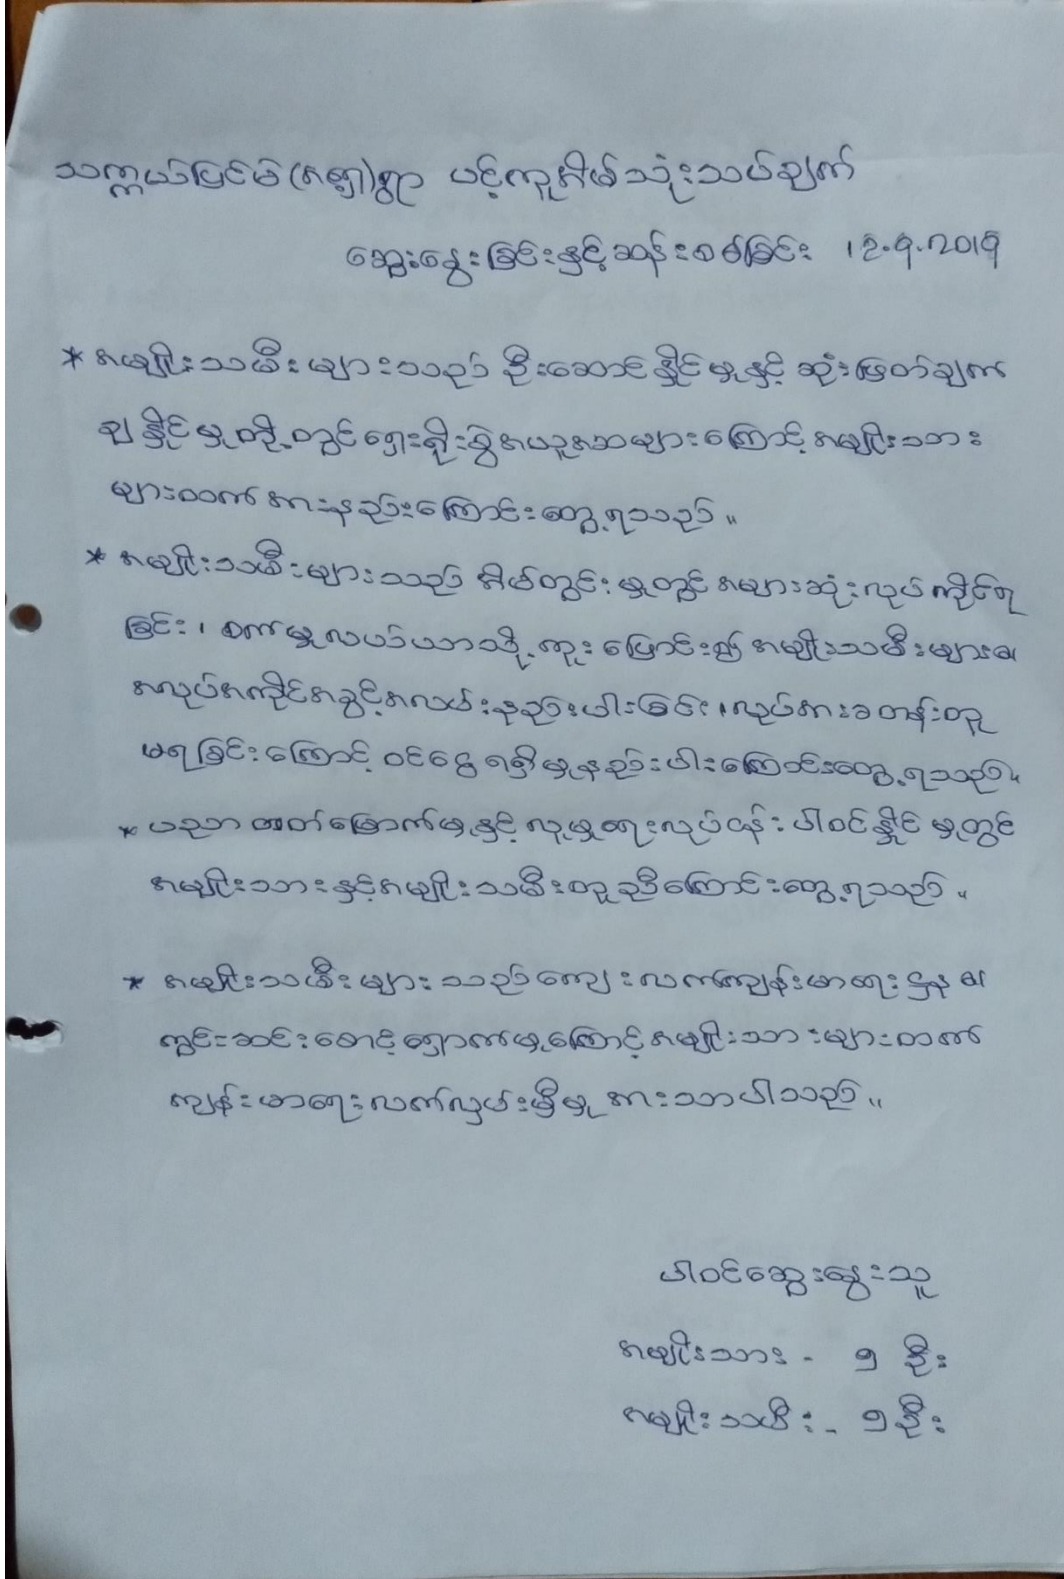 သက္ကယ်ပြင်မ(အရှေ့)ရွာ ပင့်ကူအိမ်သုံးသပ်ချက်
ဆွေးနွေးခြင်းနှင့်ဆန်းစစ်ခြင်း 12.9.2019
* အမျိုးသမီးများသည် ဦးဆောင်နိုင်မှုနှင့် ဆုံးဖြတ်ချက်
ချနိုင်မှုတို့တွင်ရှေးရိုးစွဲအယူအဆများကြောင့်အမျိုးသား
များထက်အားနည်းကြောင်းတွေ့ရသည်။
* အမျိုးသမီးများသည် အိမ်တွင်းမှုတွင်အများဆုံးလုပ်ကိုင်ရ
ခြင်း၊ စက်မှုလယ်ယာသို့ကူးပြောင်း၍အမျိုးသမီးများ၏
အလုပ်အကိုင်အခွင့်အလမ်းနည်းပါးခြင်း၊လုပ်အားခတန်းတူ
မရခြင်းကြောင့် ဝင်ငွေရရှိမှုနည်းပါးကြောင်းတွေ့ရသည်။
* ပညာတတ်မြောက်မှုနှင့်လူမှုရေးလုပ်ငန်းပါဝင်နိုင်မှုတွင်
အမျိုးသားနှင့်အမျိုးသမီးတူညီကြောင်းတွေ့ရသည်။
* အမျိုးသမီးများသည်ကျေးလက်ကျန်းမာရေးဌာန၏
ကွင်းဆင်းစောင့်ရှောက်မှုကြောင့်အမျိုးသားများထက်
ကျန်းမာရေးလက်လှမ်းမှီမှု အားသာပါသည်။
ပါဝင်ဆွေးနွေးသူ
အမျိုးသား - ၅ ဦး
အမျိုးသမီး - ၅ဦး